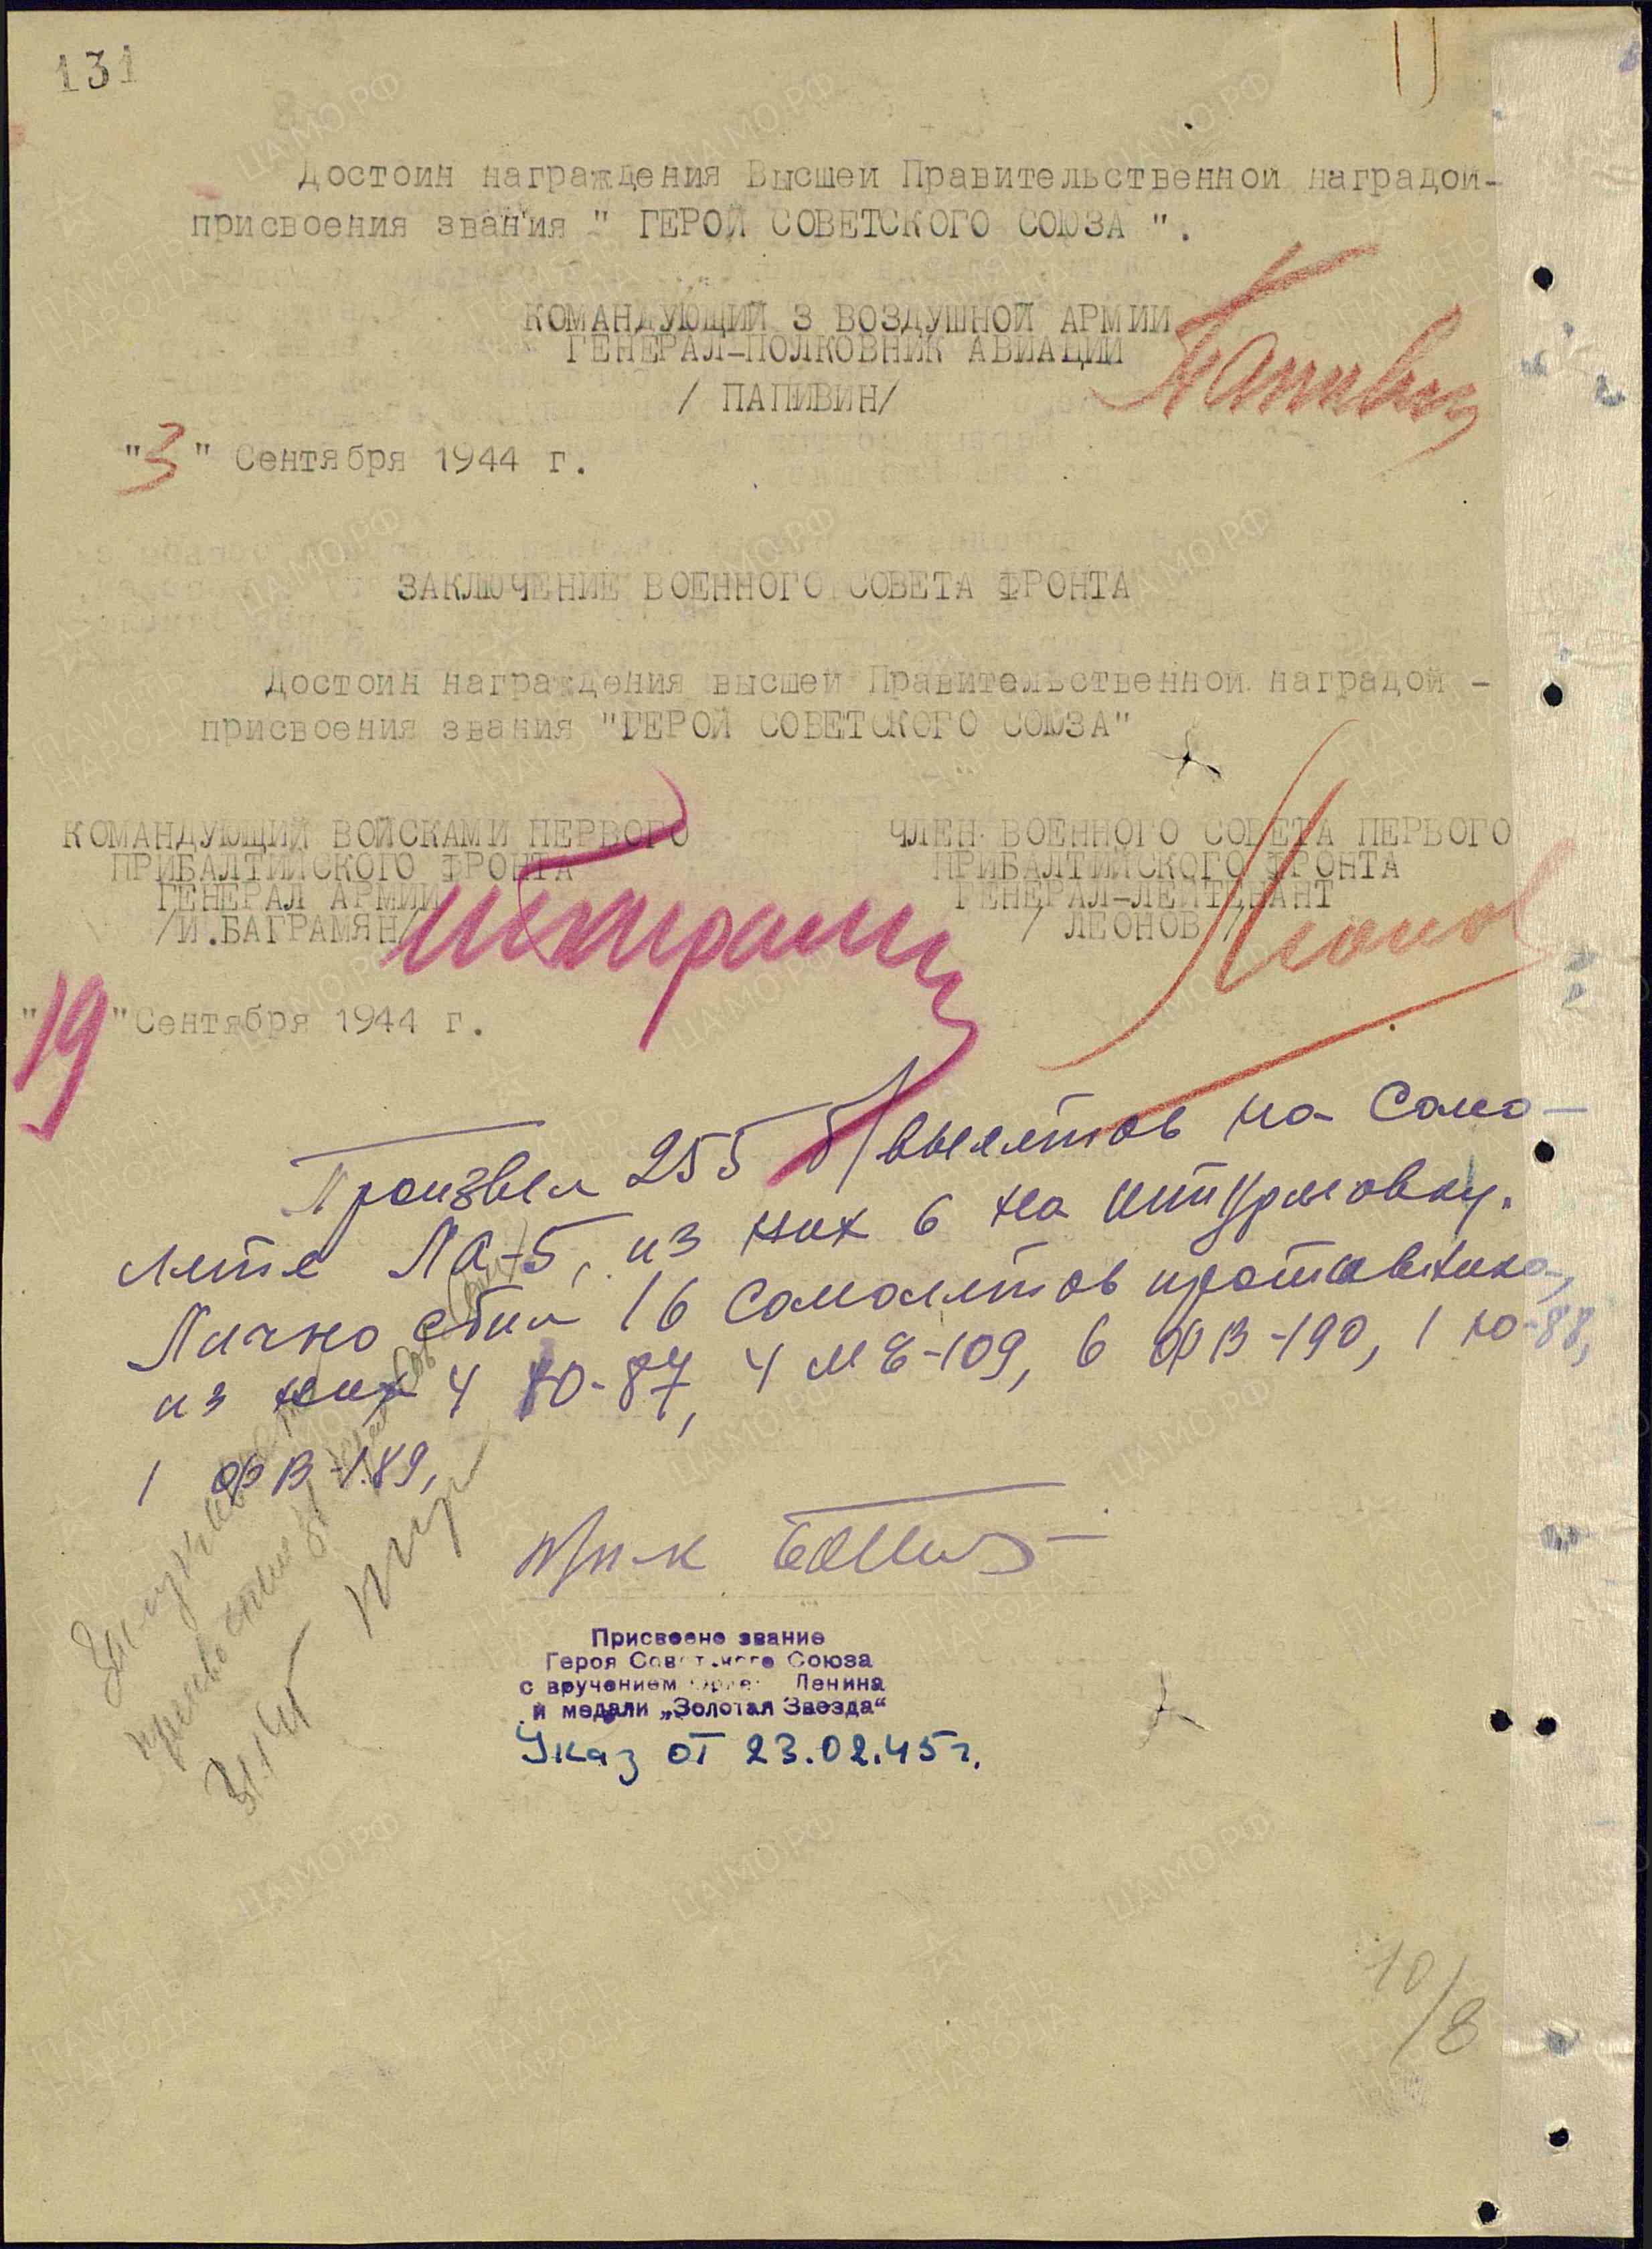 131
Достоин награждения Высшей Правительственной наградой-
присвоения звания " ГЕРОЙ СОВЕТСКОГО СОЮЗА ".
КОМАНДУЮЩИЙ 3 ВОЗДУШНОЙ АРМИИ
ГЕНЕРАЛ-ПОЛКОВНИК АВИАЦИИ
/ ПАПИВИН/
Папивин
"3" Сентября 1944 г.
ЗАКЛЮЧЕНИЕ ВОЕННОГО СОВЕТА ФРОНТА
Достоин награждения высшей Правительственной наградой -
присвоения звания "ГЕРОЙ СОВЕТСКОГО СОЮЗА"
КОМАНДУЮЩИЙ ВОЙСКАМИ ПЕРВОГО
ПРИБАЛТИЙСКОГО ФРОНТА
ГЕНЕРАЛ АРМИИ
/И.БАГРАМЯН/
ЧЛЕН ВОЕННОГО СОВЕТА ПЕРВОГО
ПРИБАЛТИЙСКОГО ФРОНТА
ГЕНЕРАЛ-ЛЕЙТЕНАНТ
/ ЛЕОНОВ /
Леонов
"19" Сентября 1944 г.
Произвел 255 б/вылетов на само-
лете ЛА-5, из них 6 на штурмовку.
Лично сбил 16 самолетов противника,
из них 4 Ю-87, 4 МЕ-109, 6 ФВ-190, 1 Ю-88,
1 ФВ-189,
Присвоено звание
Героя Советского Союза
с вручением Ордена Ленина
и медали „Золотая Звезда“
Указ от 23.02.45г.
10/8